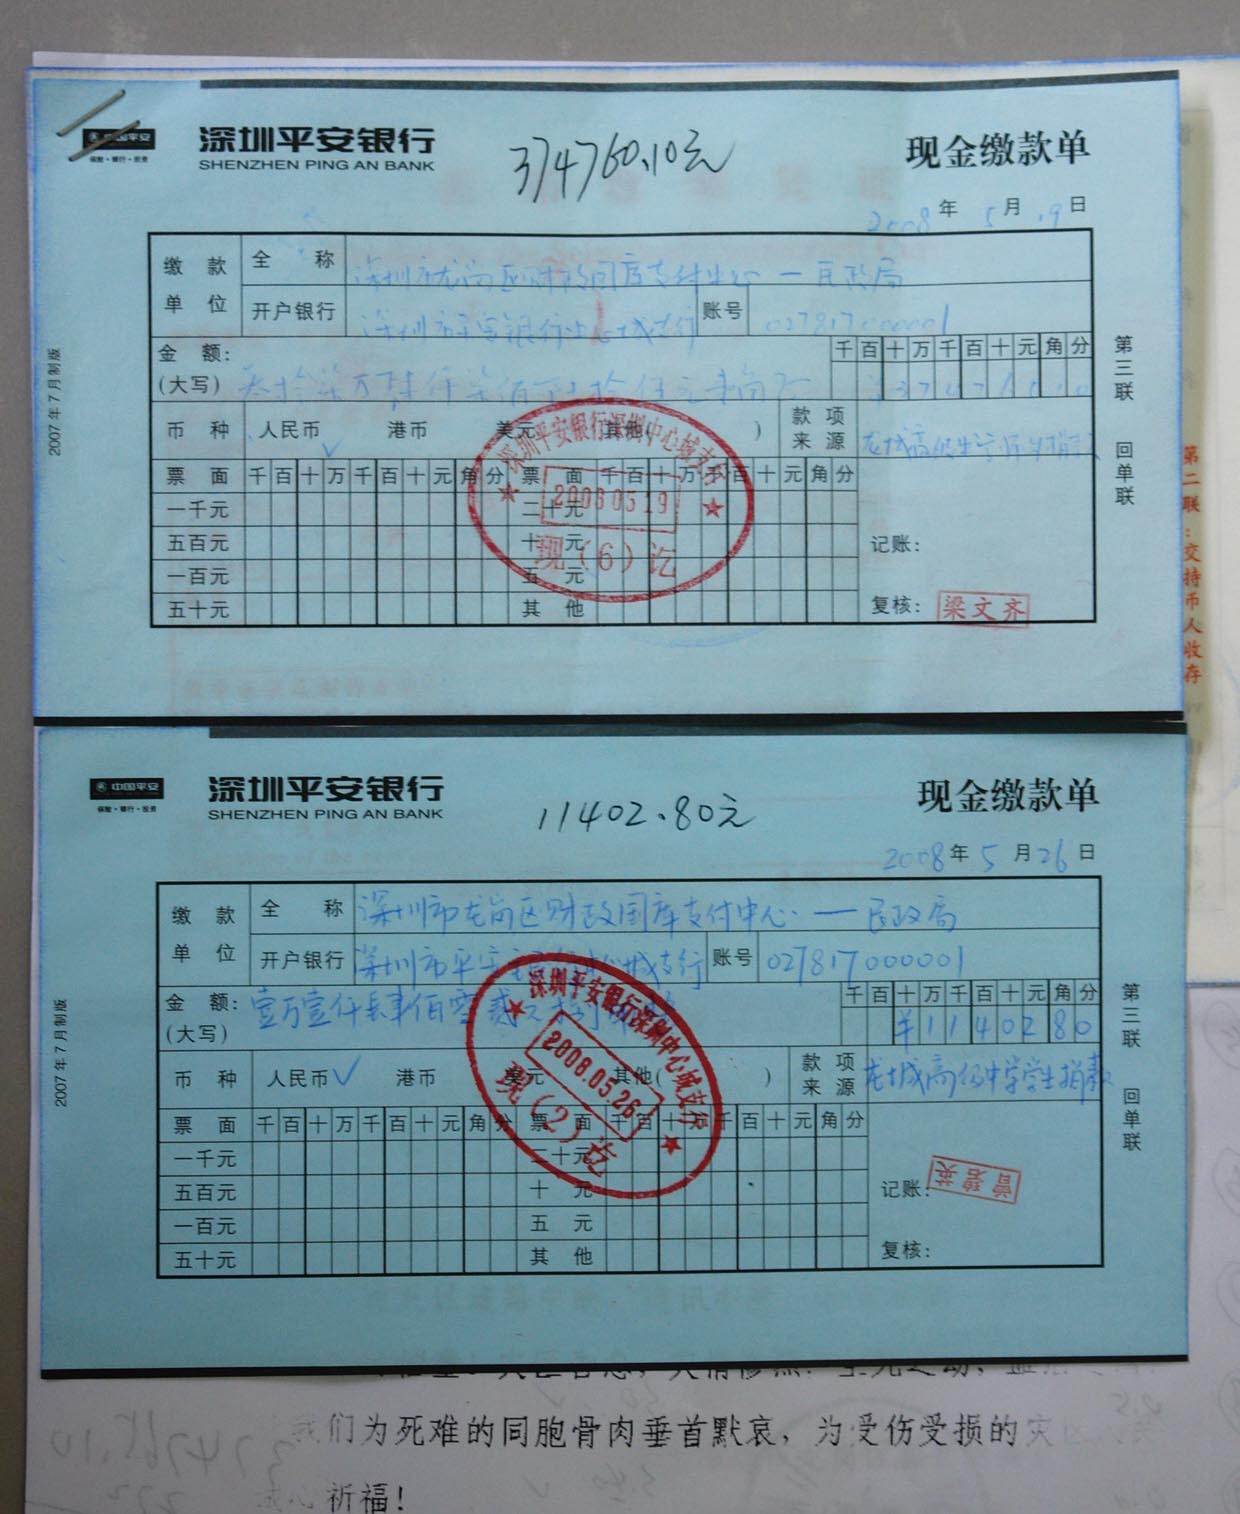 中国平安
保险·银行·投资
深圳平安银行
SHENZHEN PING AN BANK
374760.10元
现金缴款单
2008年5月19日
缴款单位
全称
深圳市龙岗区财政国库支付中心一民政局
开户银行
深圳市平安银行中心城支行
账号
027817000001
金额:
(大写)
千百十万千百十元角分
币种 人民币√ 港币 美元 其他( )
款项来源
龙城高级中学师生捐款
票面 千百十万千百十元角分 票面 千百十万千百十元角分
一千元 二十元
五百元 十元
一百元 五元
五十元 其他
记账:
复核: 梁文齐
深圳平安银行深圳中心城支行
2008.05.19
现(6)讫
第三联 回单联
2007年7月制版
第二联:交持币人收存
中国平安
保险·银行·投资
深圳平安银行
SHENZHEN PING AN BANK
11402.80元
现金缴款单
2008年5月26日
缴款单位
全称
深圳市龙岗区财政国库支付中心一民政局
开户银行
深圳市平安银行中心城支行
账号
027817000001
金额:
(大写)
壹万壹仟肆佰零贰元捌角
千百十万千百十元角分
¥1140280
币种 人民币√ 港币 美元 其他( )
款项来源
龙城高级中学学生捐款
票面 千百十万千百十元角分 票面 千百十万千百十元角分
一千元 二十元
五百元 十元
一百元 五元
五十元 其他
记账: 曾碧英
复核:
深圳平安银行深圳中心城支行
2008.05.26
现(2)讫
第三联 回单联
2007年7月制版
我们为死难的同胞骨肉垂首默哀，为受伤受损的灾
祈福！